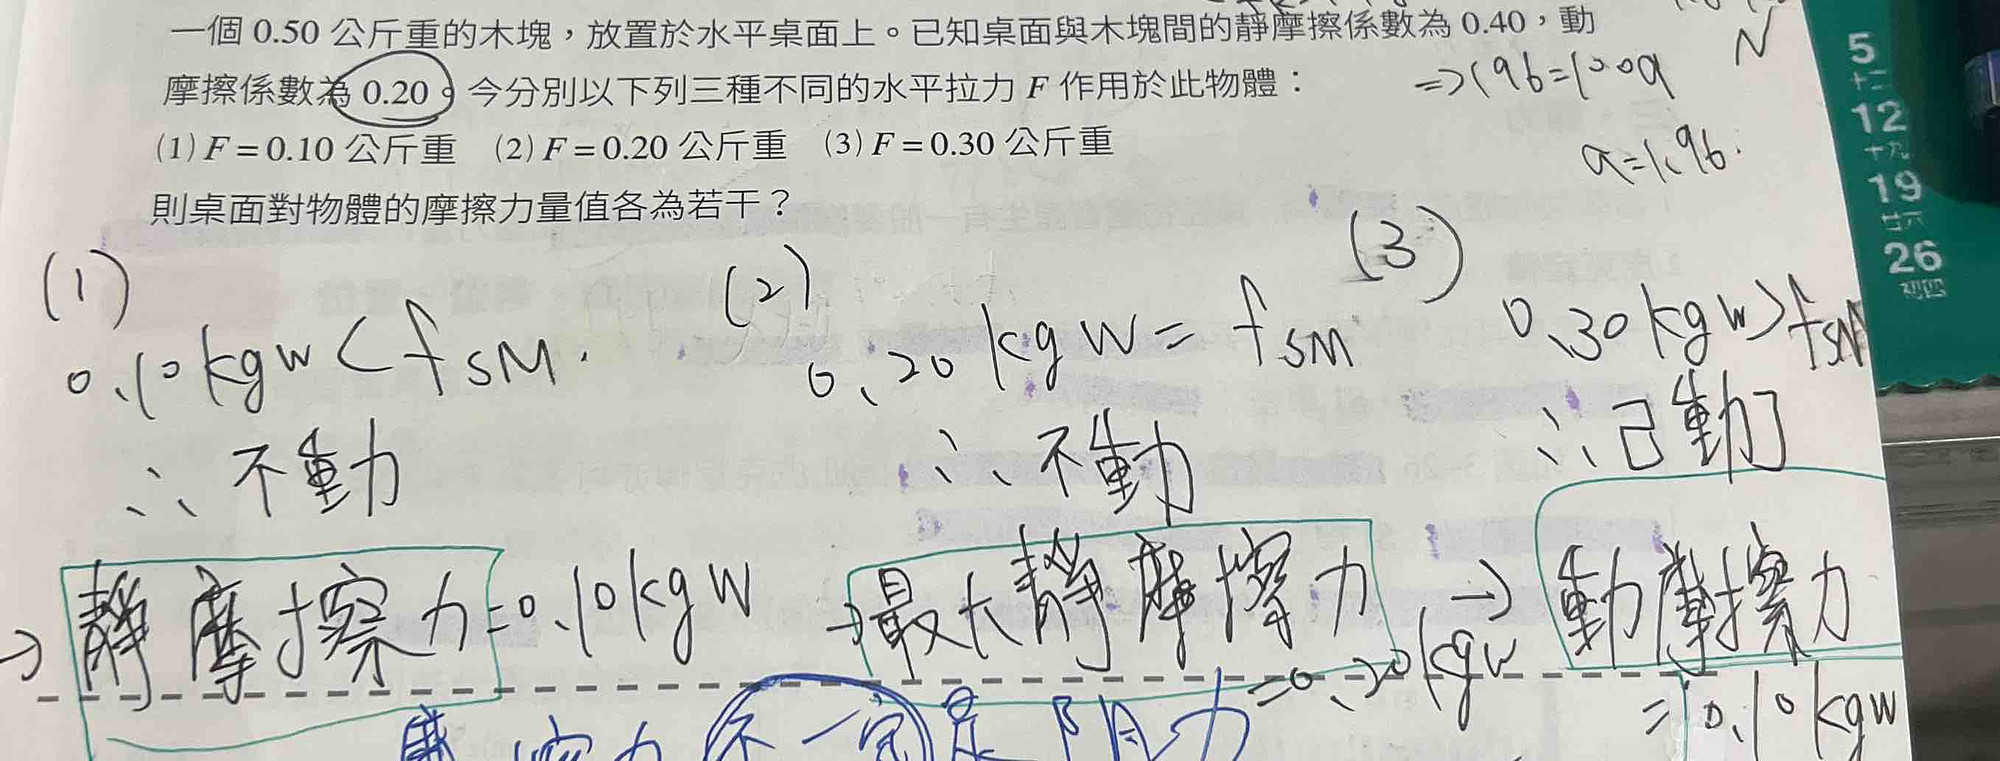 一個 0.50 公斤重的木塊，放置於水平桌面上。已知桌面與木塊間的靜摩擦係數為 0.40，動
摩擦係數為 0.20。今分別以下列三種不同的水平拉力 F 作用於此物體：
(1) F = 0.10 公斤重 (2) F = 0.20 公斤重 (3) F = 0.30 公斤重
則桌面對物體的摩擦力量值各為若干？
N
=> 196=100a
a=1.96.
(1)
0.10kgw < fsM.
∴ 不動
→ 靜摩擦力=0.10kgw
(2)
0.20kgw = fsM
∴ 不動
→最大靜摩擦力
=0.20kgw
(3)
0.30kgw>fsM
∴ 已動
→ 動摩擦力
=0.10kgw
摩擦力不一定是阻力
5
十二
12
十九
19
廿六
26